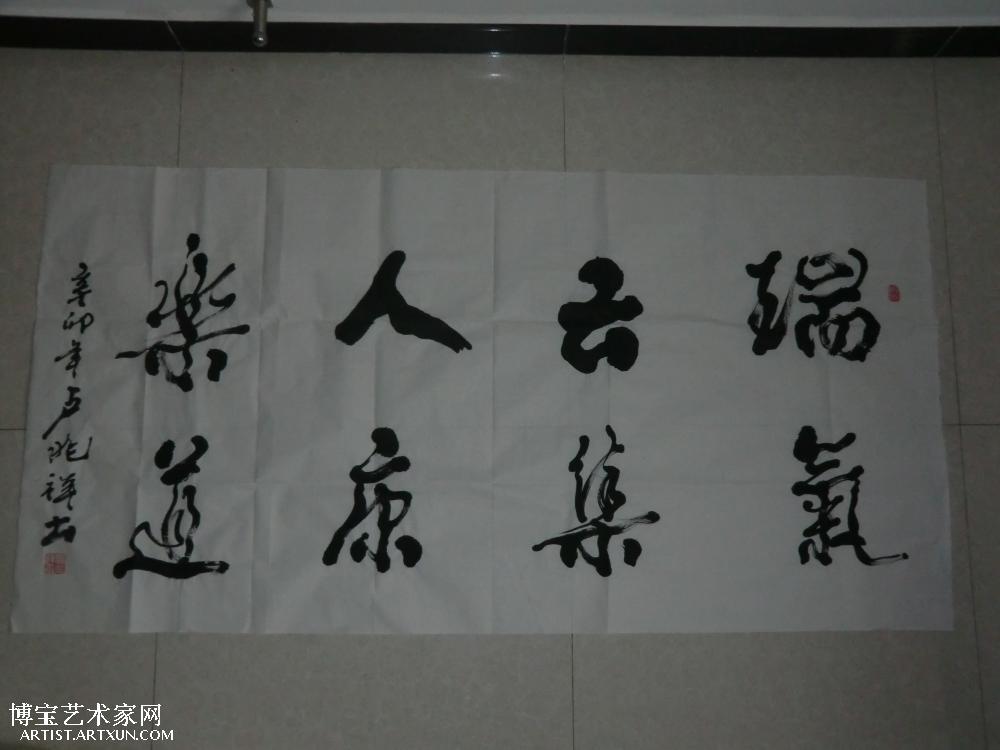 瑞氣
云集
人康
樂道
辛卯年卢兆祥书
博宝艺术家网
ARTIST.ARTXUN.COM